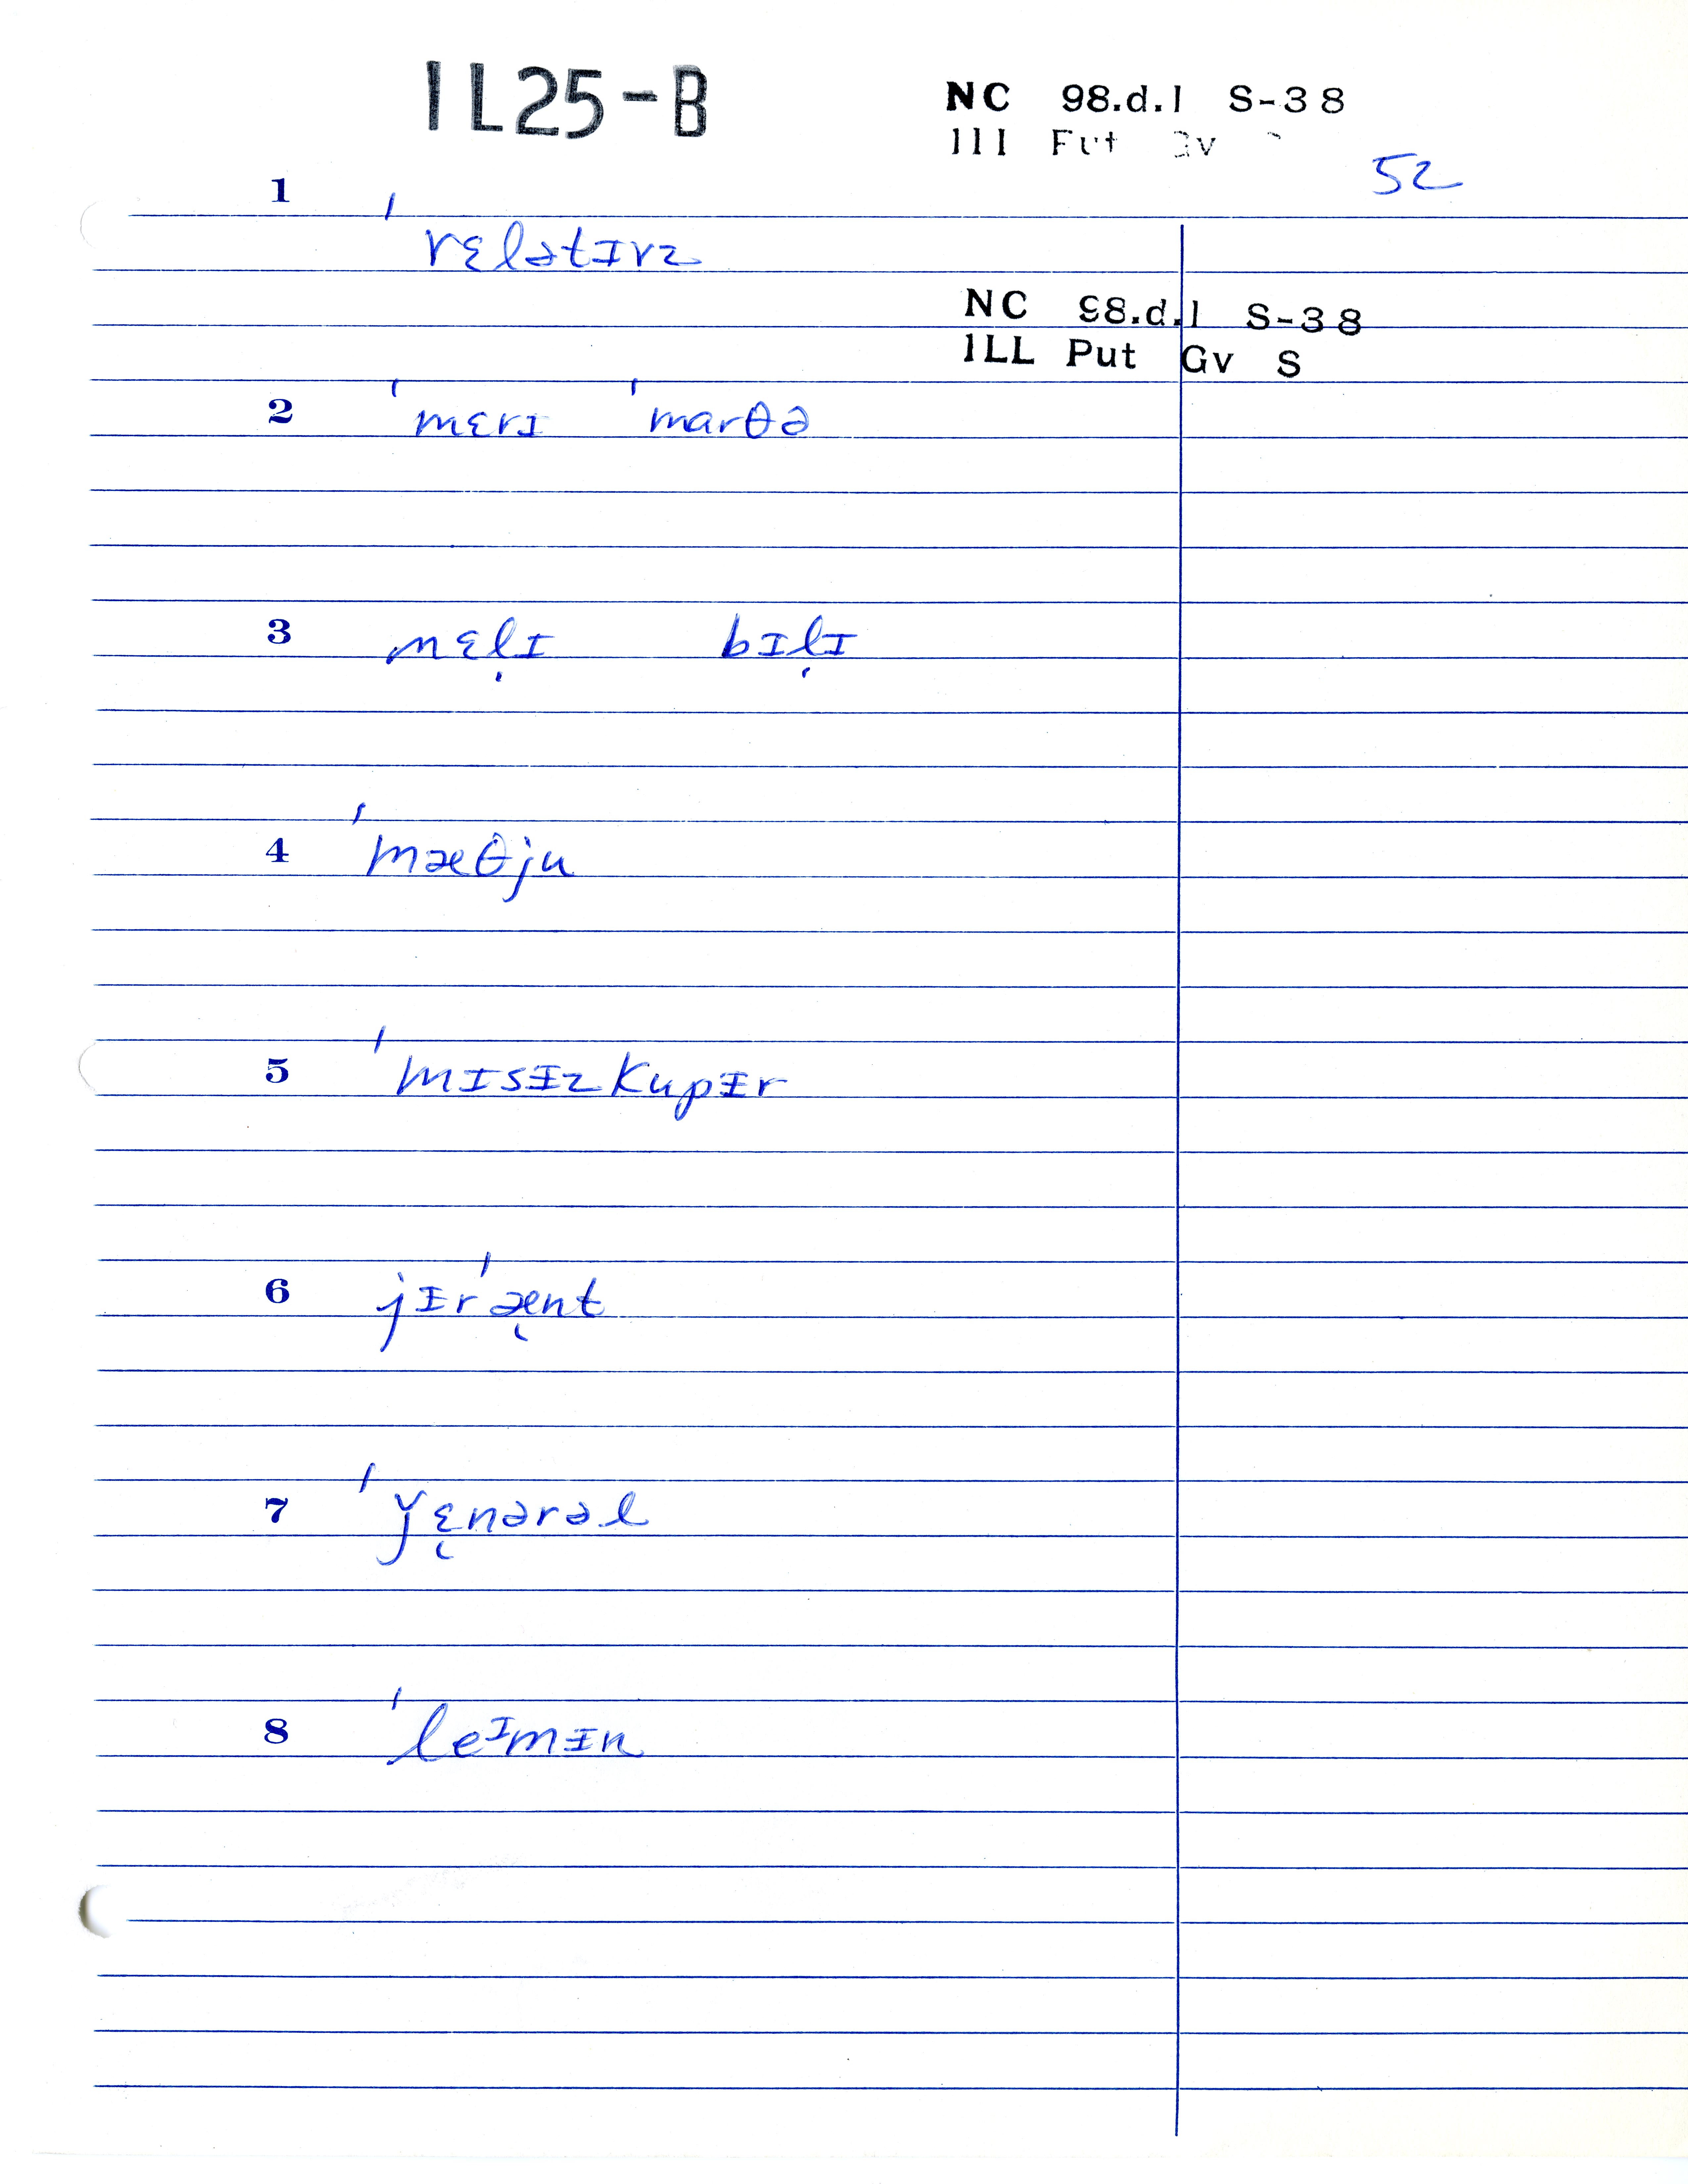 IL25-B
NC 98.d.1 S-38
Ill
52
1 ˈrɛlətɪvz
NC 98.d.1 S-38
ILL Put Gv S
2 ˈmɛrɪ ˈmarθə
3 nɛḷɪ bɪḷɪ
4 ˈmæθju
5 ˈmɪsɪz kupɪr
6 jɪrˈæ̜nt
7 ˈǰɛ̜nərəl
8 ˈleᶦmɪn